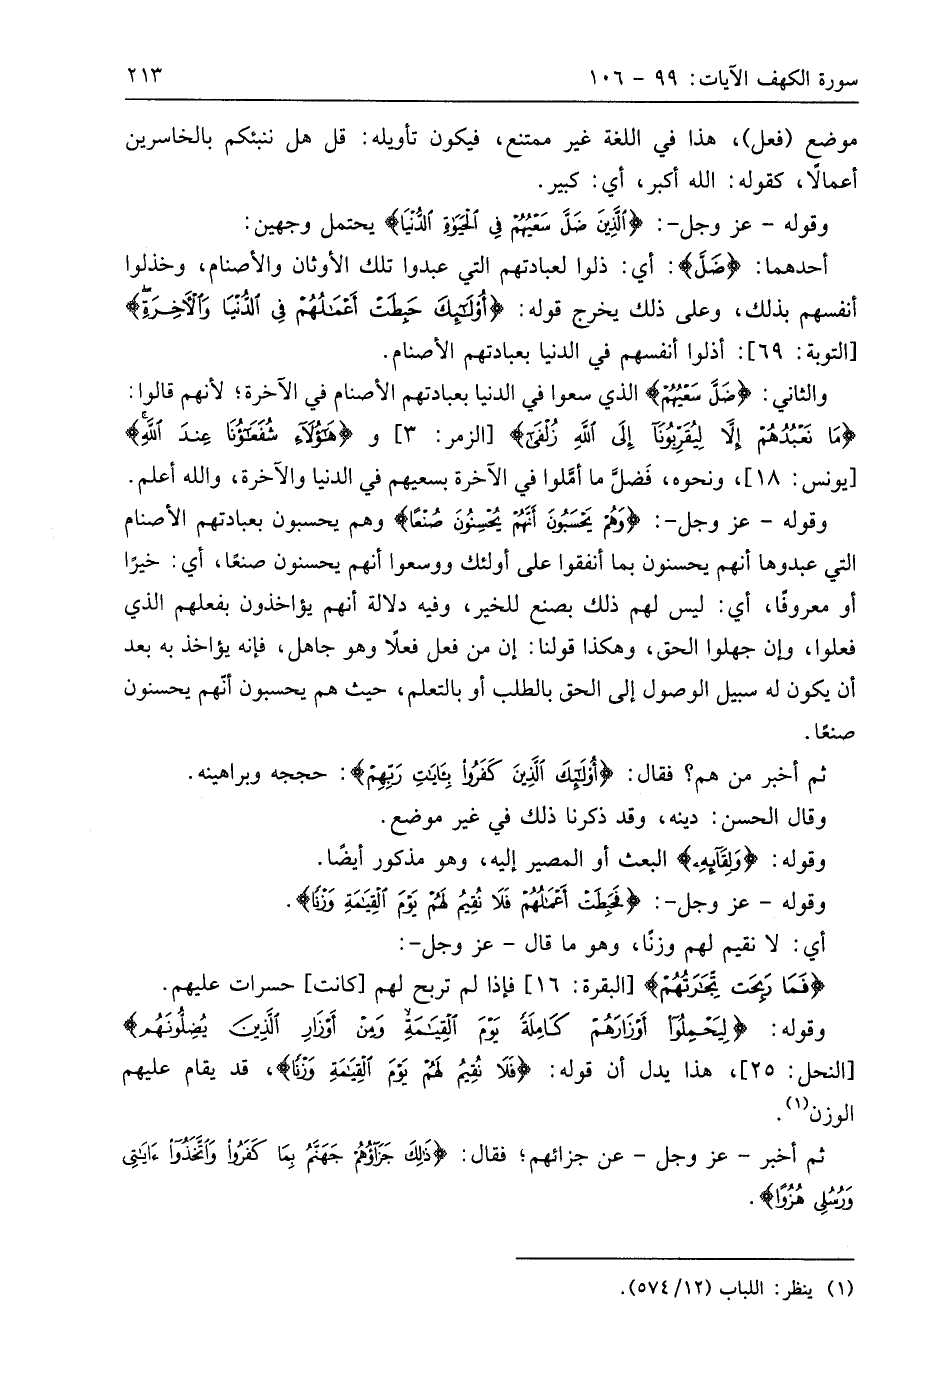 سورة الكهف الآيات: ٩٩ - ١٠٦ ٢١٣
موضع (فعل)، هذا في اللغة غير ممتنع، فيكون تأويله: قل هل ننبئكم بالخاسرين
أعمالًا، كقوله: الله أكبر، أي: كبير.
وقوله - عز وجل-: ﴿ٱلَّذِينَ ضَلَّ سَعْيُهُمْ فِي ٱلْحَيَوٰةِ ٱلدُّنْيَا﴾ يحتمل وجهين:
أحدهما: ﴿ضَلَّ﴾: أي: ذلوا لعبادتهم التي عبدوا تلك الأوثان والأصنام، وخذلوا
أنفسهم بذلك، وعلى ذلك يخرج قوله: ﴿أُوْلَٰٓئِكَ حَبِطَتْ أَعْمَٰلُهُمْ فِي ٱلدُّنْيَا وَٱلْأَخِرَةِۖ﴾
[التوبة: ٦٩]: أذلوا أنفسهم في الدنيا بعبادتهم الأصنام.
والثاني: ﴿ضَلَّ سَعْيُهُمْ﴾ الذي سعوا في الدنيا بعبادتهم الأصنام في الآخرة؛ لأنهم قالوا:
﴿مَا نَعْبُدُهُمْ إِلَّا لِيُقَرِّبُونَآ إِلَى ٱللَّهِ زُلْفَىٰٓ﴾ [الزمر: ٣] و ﴿هَٰٓؤُلَآءِ شُفَعَٰٓؤُنَا عِندَ ٱللَّهِۚ﴾
[يونس: ١٨]، ونحوه، فَضلَّ ما أمَّلوا في الآخرة بسعيهم في الدنيا والآخرة، والله أعلم.
وقوله - عز وجل-: ﴿وَهُمْ يَحْسَبُونَ أَنَّهُمْ يُحْسِنُونَ صُنْعًا﴾ وهم يحسبون بعبادتهم الأصنام
التي عبدوها أنهم يحسنون بما أنفقوا على أولئك ووسعوا أنهم يحسنون صنعًا، أي: خيرًا
أو معروفًا، أي: ليس لهم ذلك بصنع للخير، وفيه دلالة أنهم يؤاخذون بفعلهم الذي
فعلوا، وإن جهلوا الحق، وهكذا قولنا: إن من فعل فعلًا وهو جاهل، فإنه يؤاخذ به بعد
أن يكون له سبيل الوصول إلى الحق بالطلب أو بالتعلم، حيث هم يحسبون أنّهم يحسنون
صنعًا.
ثم أخبر من هم؟ فقال: ﴿أُوْلَٰٓئِكَ ٱلَّذِينَ كَفَرُواْ بِـَٔايَٰتِ رَبِّهِمْ﴾: حججه وبراهينه.
وقال الحسن: دينه، وقد ذكرنا ذلك في غير موضع.
وقوله: ﴿وَلِقَآئِهِۦ﴾ البعث أو المصير إليه، وهو مذكور أيضًا.
وقوله - عز وجل-: ﴿فَحَبِطَتْ أَعْمَٰلُهُمْ فَلَا نُقِيمُ لَهُمْ يَوْمَ ٱلْقِيَٰمَةِ وَزْنًا﴾.
أي: لا نقيم لهم وزنًا، وهو ما قال - عز وجل-:
﴿فَمَا رَبِحَت تِّجَٰرَتُهُمْ﴾ [البقرة: ١٦] فإذا لم تربح لهم [كانت] حسرات عليهم.
وقوله: ﴿لِيَحْمِلُوٓاْ أَوْزَارَهُمْ كَامِلَةً يَوْمَ ٱلْقِيَٰمَةِۙ وَمِنْ أَوْزَارِ ٱلَّذِينَ يُضِلُّونَهُم﴾
[النحل: ٢٥]، هذا يدل أن قوله: ﴿فَلَا نُقِيمُ لَهُمْ يَوْمَ ٱلْقِيَٰمَةِ وَزْنًا﴾، قد يقام عليهم
الوزن(١).
ثم أخبر - عز وجل - عن جزائهم؛ فقال: ﴿ذَٰلِكَ جَزَآؤُهُمْ جَهَنَّمُ بِمَا كَفَرُواْ وَٱتَّخَذُوٓاْ ءَايَٰتِي
وَرُسُلِي هُزُوًا﴾.
(١) ينظر: اللباب (٥٧٤/١٢).